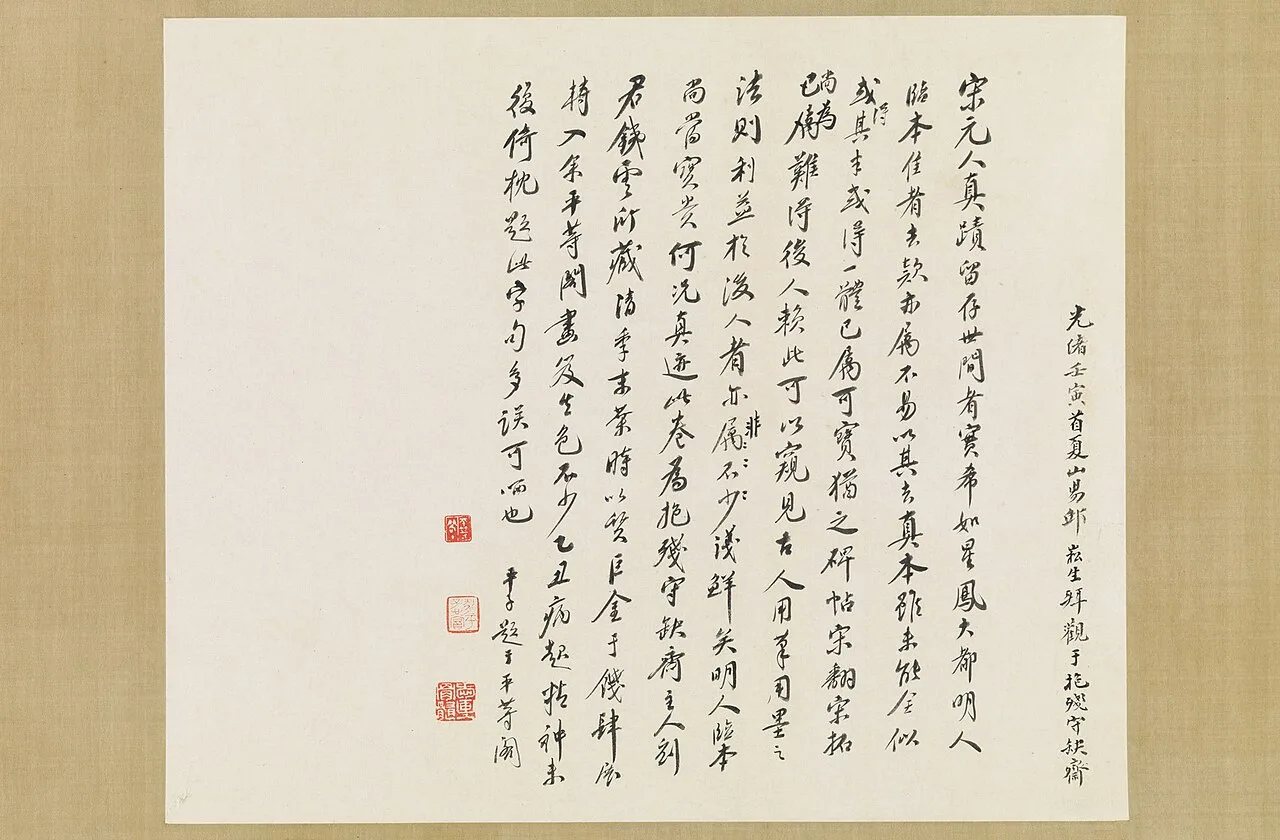 光緒壬寅首夏山易鄴崧生拜觀于抱殘守缺齋
宋元人真蹟留存世間者實希如星鳳大都明人
臨本佳者去款亦屬不易以其去真本雖未能全似
或得其半或得一體已屬可寶猶之碑帖宋翻宋拓
尚為
已屬難得後人賴此可以窺見古人用筆用墨之
法則利益於後人者亦屬不少淺鮮矣明人臨本
非
尚當寶貴何況真迹此卷為抱殘守缺齋主人劉
君鐵雲所藏清季末葉時以質巨金于餞肆展
轉入余平等閣畫笈生色不少乙丑病起精神未
復倚枕題此字句多誤可哂也
平子題于平等閣